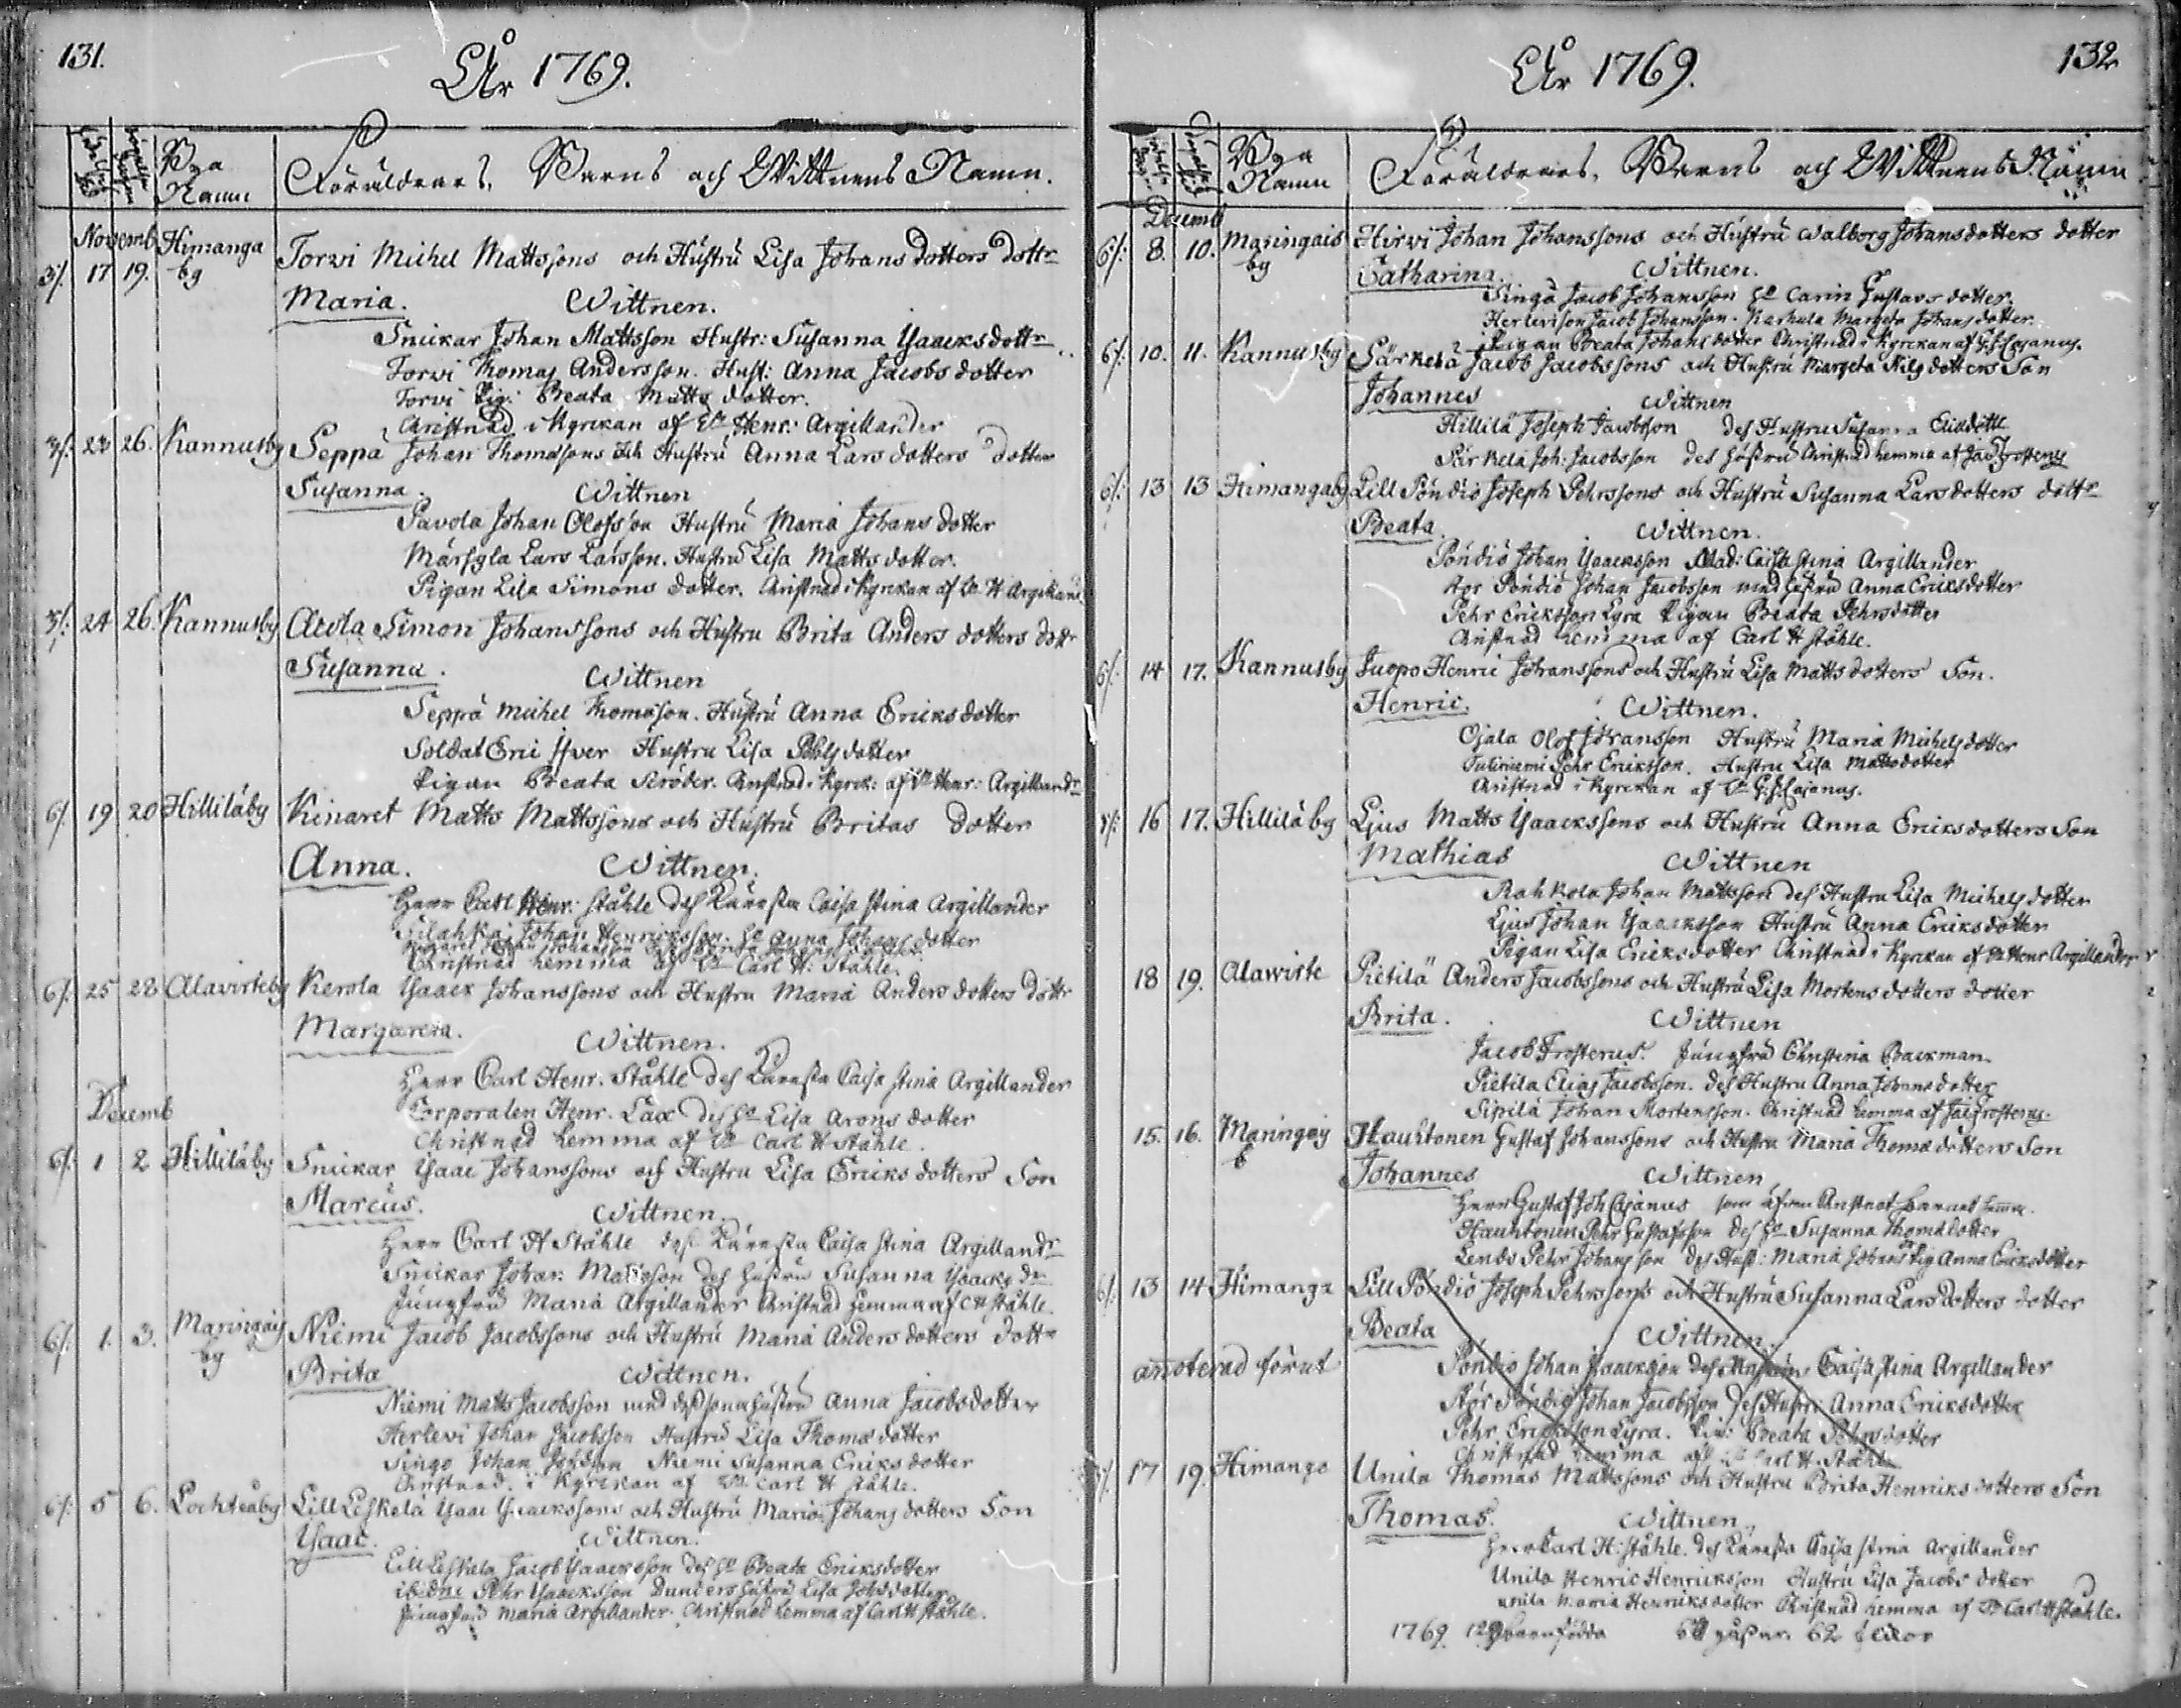 131.
År 1769.
Bya Namn
Föräldrars, Barns och Wittnens Namn.
Novemb.
3/. 17 19. Himanga by Torvi Michel Mattssons och Hustru Lisa Johans dotters dottr
Maria. Wittnen.
Snickar Johan Mattsson Hustr: Susanna Ysaacksdottr
Torvi Thomas Andersson. Hust: Anna Jacobs dotter
Torvi Pig: Beata Matts dotter.
Christnad i Kyrckan af Vn Henr: Argillander
3/: 23 26. Kannusby Seppä Johan Thomassons och Hustru Anna Lars dotters dotter
Susanna. Wittnen
Pavola Johan Olofsson Hustru Maria Johans dotter
Märsyla Lars Larsson. Hustru Lisa Matts dotter.
Pigan Lisa Simons dotter. Christnad i Kyrckan af Vn H Argilland
3/: 24 26. Kannusby Alola Simon Johanssons och Hustru Brita Anders dotters dottr
Susanna. Wittnen
Seppä Michel Thomasson. Hustru Anna Ericks dotter
Soldat Eric Hustru Lisa dotter
Pigan Beata Kröder. Christnad i Kyrck: af Vn Henr: Argillandr
6/. 19 20 Hilliläby Kinaret Matts Mattssons och Hustru Britas dotter
Anna. Wittnen.
Herr Carl Henr: Ståhle des Käresta Caisa Stina Argillander
Silahka Johan Henricksson. Ho Anna Johans dotter
Christnad hemma af Vn Carl H: Ståhle.
6/: 25 28 Alavirteby Kerola Ysaack Johanssons och Hustru Maria Anders dotters dottr
Margareta. Wittnen.
Herr Carl Henr. Ståhle des Käresta Caisa Stina Argillander
Corporalen Henr. Lax des Ho Lisa Arons dotter
Christnad hemma af Vn Carl H Ståhle.
Decemb
6/: 1 2 Hilliläby Snickar Ysaac Johanssons och Hustru Lisa Ericks dotters Son
Marcus. Wittnen.
Herr Carl H Ståhle des Käresta Caisa Stina Argillandr
Snickar Johan Mattsson des Hustru Susanna Ysaacks dr
Jungfru Maria Argillander Christnad hemma af C H Ståhle.
6/: 1. 3. Maringais by Niemi Jacob Jacobssons och Hustru Maria Anders dotters dottr
Brita Wittnen.
Niemi Matts Jacobsson med des sonahustru Anna Jacobsdotter
Herlevi Johan Jacobsson Hustru Lisa Thomas dotter
Singo Johan Niemi Susanna Ericks dotter
Christnad i Kyrckan af Vn Carl H Ståhle.
6/: 5 6. Lochteåby Lill Leskelä Ysaac Ysaackssons och Hustru Maria Johans dotters Son
Ysaac. Wittnen.
Lill Leskela Jacob Ysaacksson des Ho Beata Ericksdotter
ibidne Pehr Ysaacksson Dunders hustru Lisa
Jungfru Maria Argillander. Christnad hemma af Carl H Ståhle.
132
År 1769.
Bya Namn
Föräldrars, Barns och Wittnens Namn
Decemb
6/: 8. 10. Maringais by Hirvi Johan Johanssons och Hustru Walborg Johansdotters dotter
Catharina. Wittnen.
Singå Jacob Johansson Ho Carin Gustavs dotter.
Herlevi son Jacob Johansson. Karhula Margeta Johans dotter.
Pigan Beata Johans dotter Christnad i Kyrckan af G J Cajanus.
6/. 10. 11. Kannusby Särkelä Jacob Jacobssons och Hustru Margeta Nils dotters Son
Johannes Wittnen
Hillilä Joseph Jacobsson des Hustru Susanna
Särkelä Joh: Jacobsson des hustru Christnad hemma af Jac Frosterus
6/: 13 13 Himangaby Lill Pöndiö Joseph Pehrssons och Hustru Susanna Larsdotters dottr
Beata Wittnen.
Pöndiö Johan Ysaacksson Mad: Caisa Stina Argillander
Stor Pöndiö Johan Jacobsson med hustru Anna Ericksdotter
Pehr Ericksson Lyra Pigan Beata Pehrsdotter
Christnad hemma af Carl H Ståhle.
6/. 14 17. Kannusby Juopo Henric Johanssons och Hustru Lisa Matts dotters Son.
Henric. Wittnen.
Ojala Olof Johansson Hustru Maria Michelsdotter
Tuliniemi Pehr Ericksson. Hustru Lisa Mattsdotter
Christnad i Kyrckan af Vn G. J. Cajanus.
16 17. Hilliläby Ljus Matts Ysaackssons och Hustru Anna Ericksdotters Son
Mathias Wittnen
Rahkola Johan Mattsson des Hustru Lisa Michelsdotter
Ljus Johan Ysaacksson Hustru Anna Ericksdotter
Pigan Lisa Ericksdotter Christnad i Kyrckan af Vn Henr Argillander
18 19. Alawirte Pietilä Anders Jacobssons och Hustru Lisa Mortens dotters dotter
Brita. Wittnen
Jacob Frosterus. Jungfru Christina Backman.
Pietila Elias Jacobsson. des Hustru Anna Johansdotter
Sipilä Johan Mortensson. Christnad hemma af Jac Frosterus.
15. 16. Maringais b Hauhtonen Gustaf Johanssons och Hustru Maria Thomædotters Son
Johannes Wittnen
Herr Gustaf Joh Cajanus som äfven Christnat barnet hemma.
Hauhtonen Pehr Gustafsson des Ho Susanna Thomædotter
Lends Pehr Johansson des Hust: Maria Johans Pig Anna Ericksdotter
6/. 13 14 Himanga Lill Pöndiö Joseph Pehrssons och Hustru Susanna Larsdotters dotter
Beata Wittnen.
annoterad förut
Pöndio Johan Ysaacksson des Caisa Stina Argillander
Stor Pöndiö Johan Jacobsson des Hustru Anna Ericksdotter
Pehr Ericksson Lyra. Pig: Beata Pehrsdotter
Christnad hemma af Vn Carl H. Ståhle
17 19. Himango Unila Thomas Mattssons och Hustru Brita Henricksdotters Son
Thomas. Wittnen.
Herr Carl H: Ståhle. des Käresta Caisa Stina Argillander
Unila Henric Henricksson Hustru Lisa Jacobs dotter
Unila Maria Henricksdotter Christnad hemma af Vn Carl H Ståhle.
1769. barn födda gossar. 62 flickor